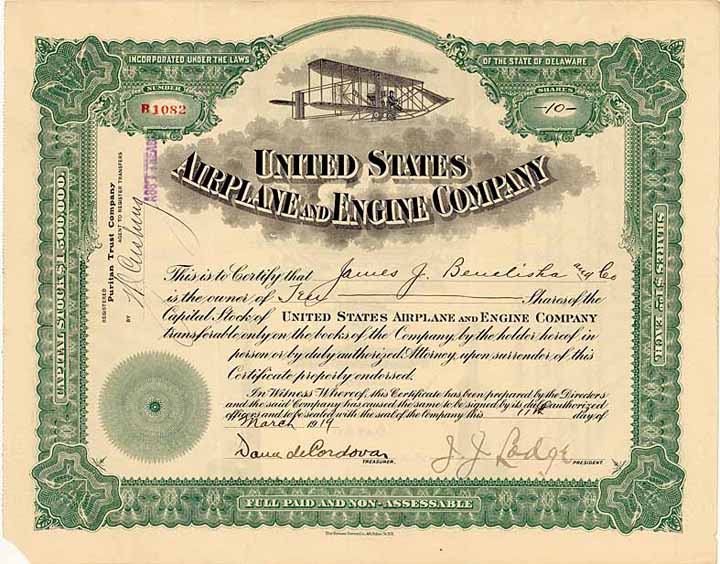 INCORPORATED UNDER THE LAWS OF THE STATE OF DELAWARE
NUMBER
B1082
SHARES
-10-
UNITED STATES
AIRPLANE AND ENGINE COMPANY
CAPITAL STOCK $1,500,000.
REGISTERED
Puritan Trust Company
AGENT TO REGISTER TRANSFERS
BY
This is to Certify that James J. Benelisha and Co
is the owner of Ten Shares of the
Capital Stock of UNITED STATES AIRPLANE AND ENGINE COMPANY
transferable only on the books of the Company, by the holder hereof in
person or by duly authorized Attorney, upon surrender of this
Certificate properly endorsed.
In Witness Whereof, this Certificate has been prepared by the Directors
and the said Company has caused the same to be signed by its duly authorized
officers and to be sealed with the seal of the Company this 11th day of
March 1919
Dana de Cordova
TREASURER.
J. J. Lodge
PRESIDENT.
SHARES $5.00 EACH
FULL PAID AND NON-ASSESSABLE